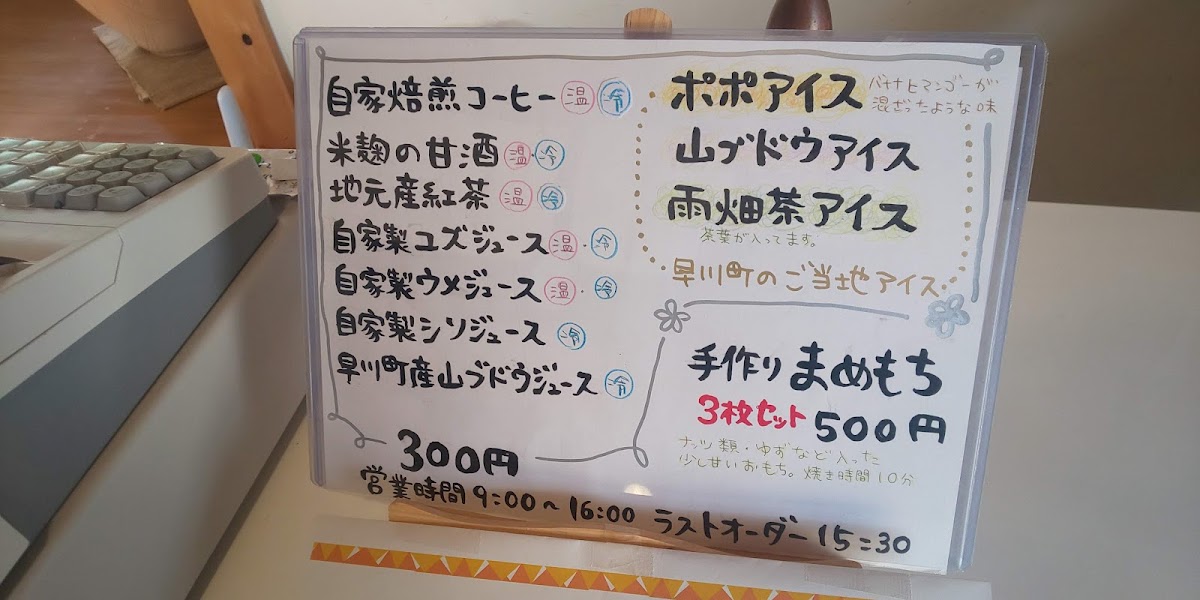 自家焙煎コーヒー 温 冷
米麹の甘酒 温・冷
地元産紅茶 温 冷
自家製ユズジュース 温・冷
自家製ウメジュース 温・冷
自家製シソジュース 冷
早川町産山ブドウジュース 冷
300円
ポポアイス
バナナとマンゴーが
混ざったような味
山ブドウアイス
雨畑茶アイス
茶葉が入ってます。
早川町のご当地アイス
手作りまめもち
3枚セット 500円
ナッツ類・ゆずなど入った
少し甘いおもち。焼き時間10分
営業時間9:00〜16:00 ラストオーダー15:30